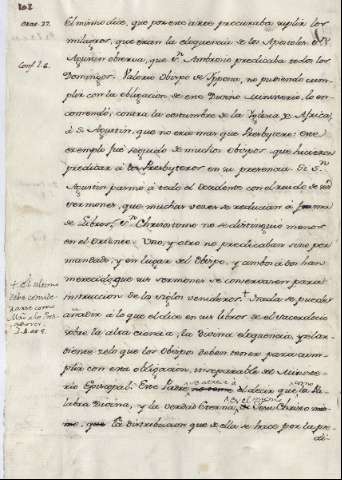 102
Orat. 32.
El mismo dice, que por este arte procuraba suplir los
milagros, que eran la eloquencia de los Apostoles. S.
Conf. l. 6.
Agustin observa, que Sn. Ambrosio predicaba todos los
Domingos. Valerio Obispo de Yppona, no pudiendo cum-
plir con la obligacion de este Divino ministerio, lo en-
comendó, contra la costumbre de la Yglesia de Africa,
á S. Agustin, que no era mas que Presbytero: este
exemplo fué seguido de muchos Obispos, que hicieron
predicar á los Presbyteros en su presencia. Sn.
Agustin pasmó á todo el Occidente con el ruido de sus
sermones, que muchas veces se reducian á forma
de Libros. Sn. Chrisostomo no se distinguió menos
en el Oriente. Uno, y otro no predicaban sino por
mandado, y en lugar del Obispo, y ambos á dos han
merecido, que sus sermones se conserven para la
instruccion de los siglos venideros. + Nada se puede
añadir á lo que el dice en sus libros de el Sacerdocio
sobre la alta ciencia, la Divina eloquencia, y el ar-
diente zelo que los Obispos deben tener para cum-
plir con esta obligacion, inseparable de el Ministe-
rio Episcopal. Este Padre no teme decir que la Pa-
labra Divina, y la verdad Eterna, Jesu Christo mis-
mo, que la distribucion que de ella se hace por la pre-
di-
+ El ultimo